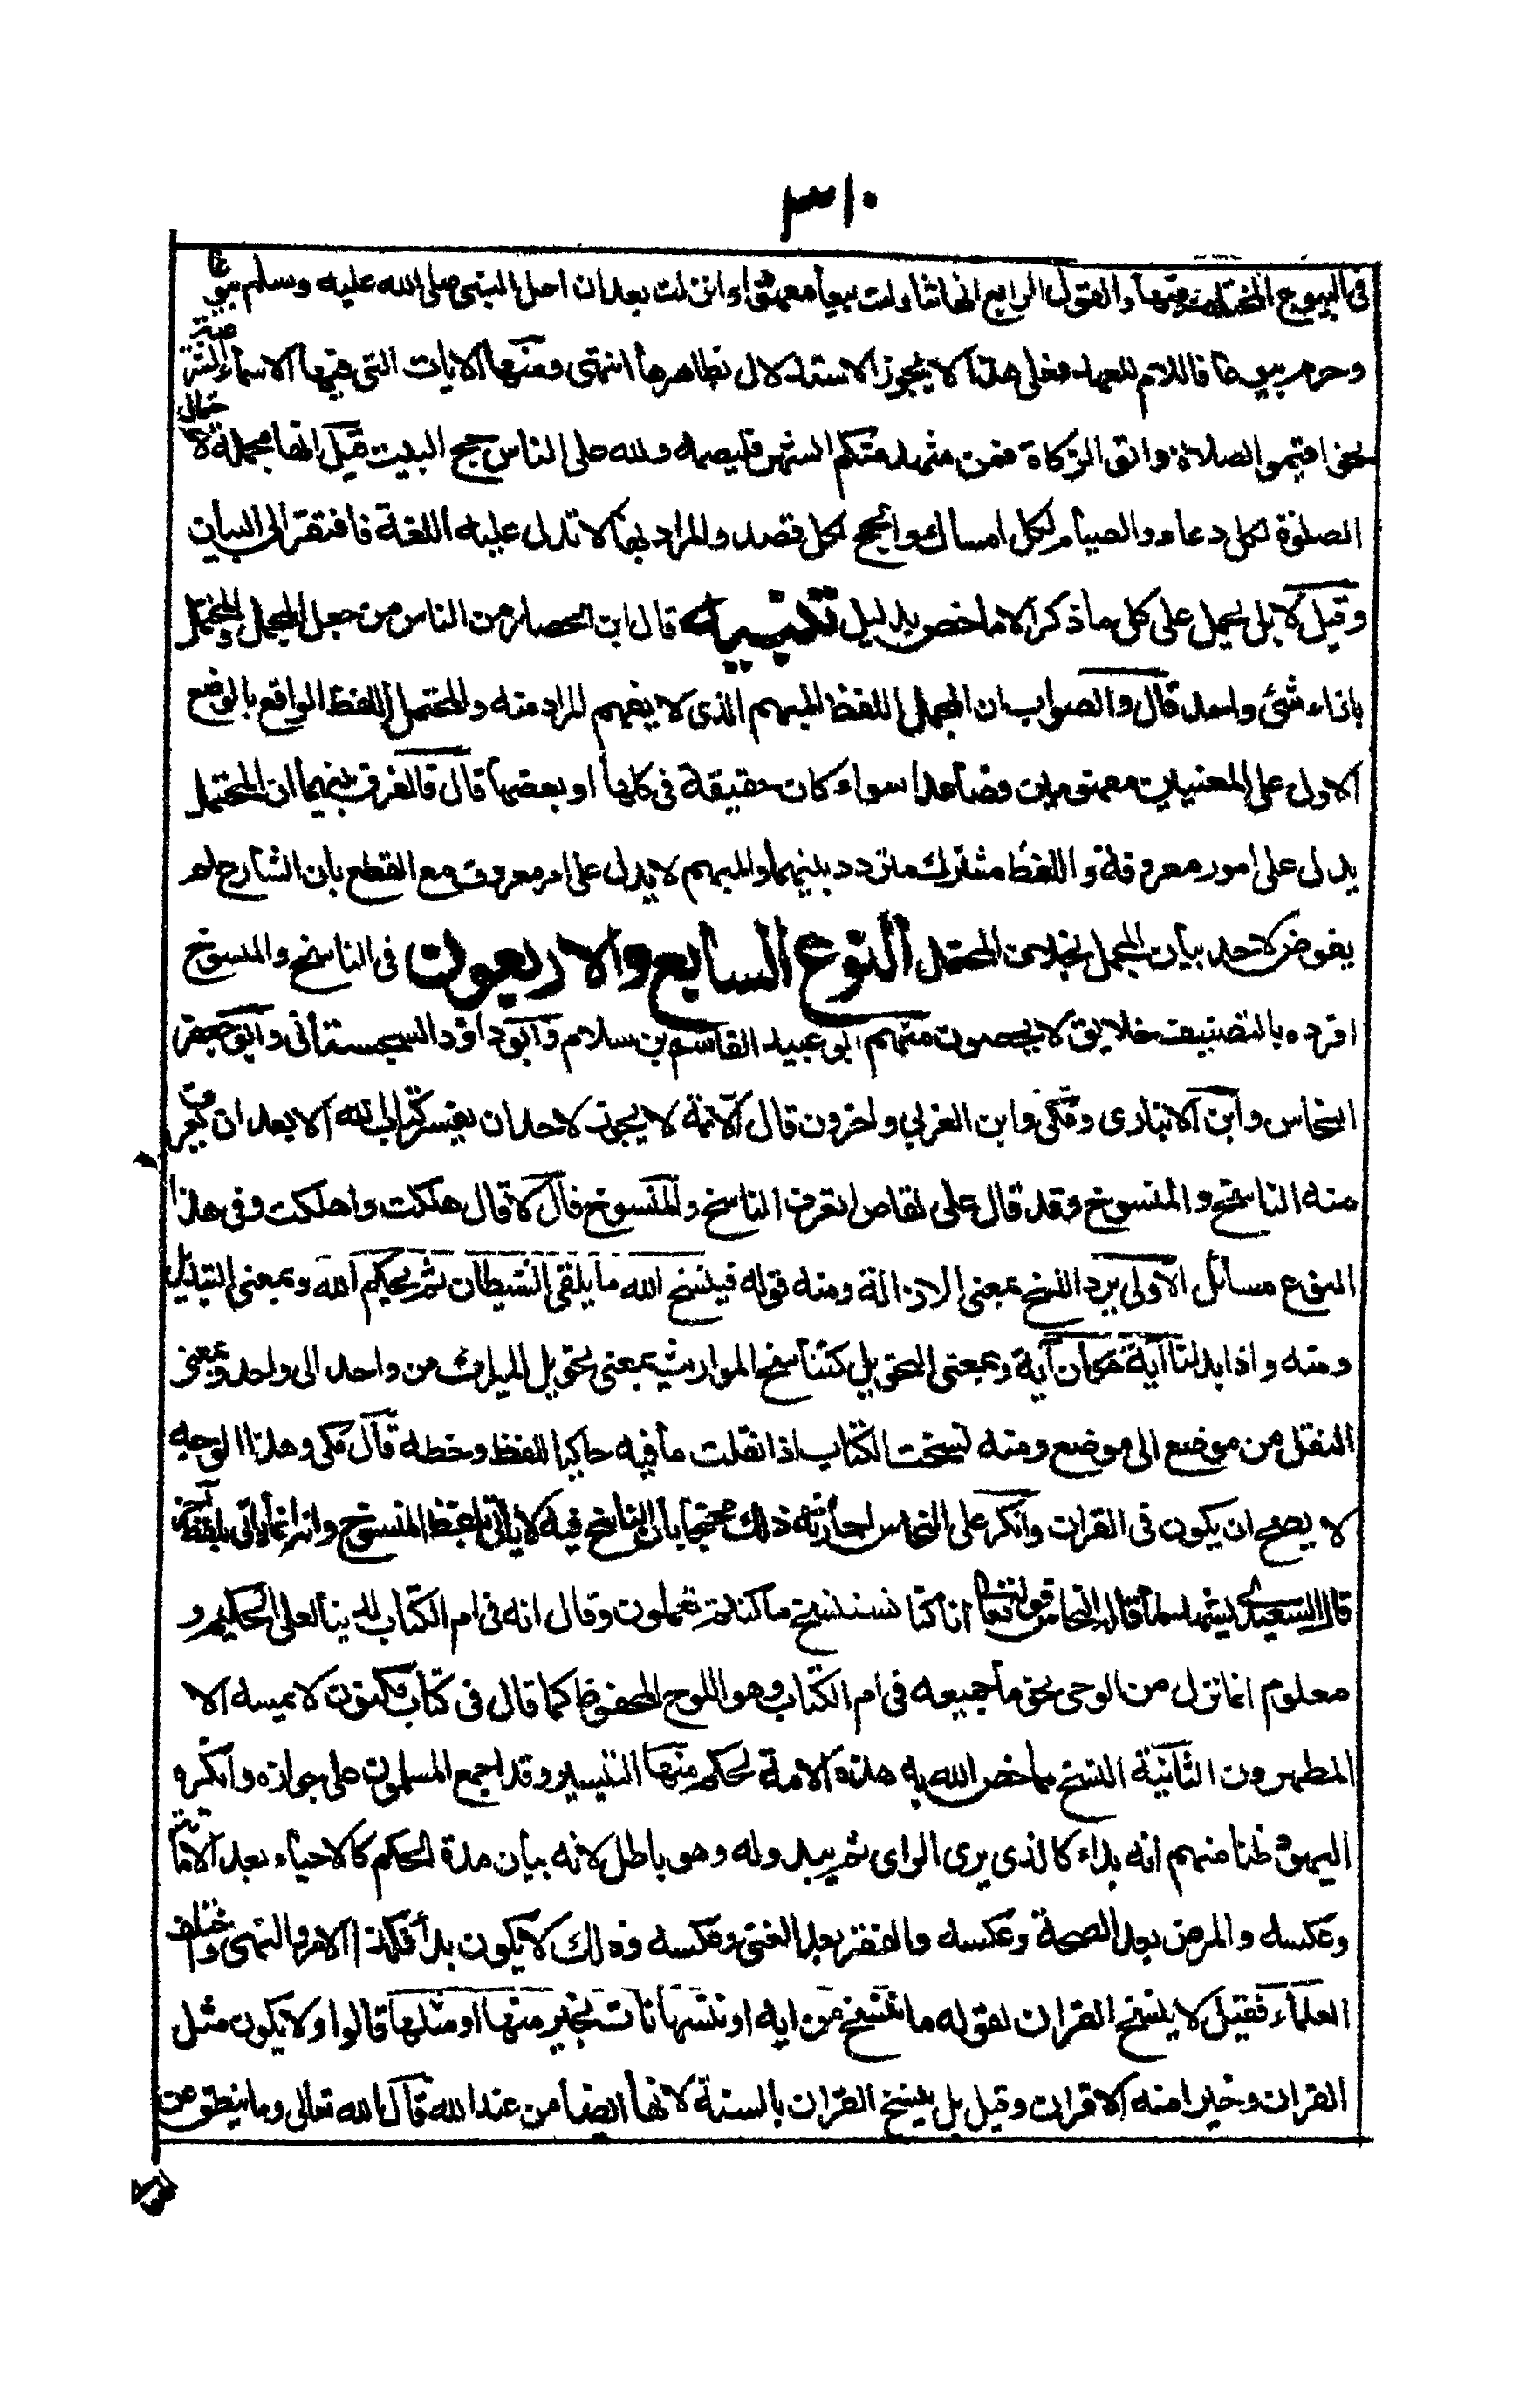 ٣١٠
فى البيوع المختلف فيها والقول الرابع انها تناولت بيعا معهودا ونزلت بعد ان احل النبى صلى الله عليه وسلم بيوعا
وحرم بيوعا فاللام للعهد فعلى هذا لا يجوز الاستدلال بظاهرها انتهى ومنها الايات التى فيها الاسماء الشرعية
نحو اقيموا الصلاة واتوا الزكاة فمن شهد منكم الشهر فليصمه ولله على الناس حج البيت قيل انها مجملة لاحتمال
الصلوة لكل دعاء والصيام لكل امساك والحج لكل قصد والمراد بها لا تدل عليه اللغة فافتقر الى البيان
وقيل لا بل يحمل على كل ما ذكر الا ما خص بدليل تنبيه قال ابن الحصار من الناس من جعل المجمل والمحتمل
باناء شئ واحد قال والصواب ان المجمل اللفظ المبهم الذى لا يفهم المراد منه والمحتمل اللفظ الواقع بالوضع
الاول على المعنيين مفهومين فصاعدا سواء كان حقيقة فى كلها او بعضها قال فالفرق بينهما ان المحتمل
يدل على امور معروفة واللفظ مشترك متردد بينهما والمبهم لا يدل على امر معروف مع القطع بان الشارع لم
يفوض لاحد بيان المجمل بخلاف المحتمل النوع السابع والاربعون فى الناسخ والمنسوخ
افرده بالتصنيف خلايق لا يحصون منهم ابى عبيد القاسم بن سلام وابو داؤد السجستانى وابو جعفر
النحاس وابن الانبارى ومكى وابن العربي واخرون قال الائمة لا يجوز لاحد ان يفسر كتاب الله الا بعد ان يعرف
منه الناسخ والمنسوخ وقد قال على لقاص اتعرف الناسخ والمنسوخ قال لا قال هلكت واهلكت وفى هذا
النوع مسائل الاولى يرد النسخ بمعنى الازالة ومنه قوله فينسخ الله ما يلقى الشيطان ثم يحكم الله وبمعنى التبديل
ومنه واذا بدلنا آية مكان آية وبمعنى التحويل كتناسخ المواريث بمعنى تحويل الميراث من واحد الى واحد وبمعنى
النقل من موضع الى موضع ومنه نسخت الكتاب اذا نقلت ما فيه حاكيا للفظ وخطه قال مكى وهذا الوجه
لا يصح ان يكون فى القران وانكر على النحاس اجازته ذلك محتجا بان الناسخ فيه لا يأتى بلفظ المنسوخ وانه انما ياتى بلفظ آخر
قال السعيدى يشهد لما قاله النحاس قوله تعالى انا كنا نستنسخ ما كنتم تعملون وقال انه فى ام الكتاب لدينا لعلى الحكيم و
معلوم انما نزل من الوحى نحو ما جميعه فى ام الكتاب وهو اللوح المحفوظ كما قال فى كتاب مكنون لا يمسه الا
المطهرون الثانية النسخ مما خص الله به هذه الامة لحكم منها التيسير وقد اجمع المسلمون على جوازه وانكره
اليهود ظنا منهم انه بداء كالذى يرى الراى ثم يبدو له وهو باطل لانه بيان مدة الحكم كالاحياء بعد الاماتة
وعكسه والمرض بعد الصحة وعكسه والفقر بعد الغنى وعكسه وذلك لا يكون بدأ فكذا الامر والنهى واختلف
العلماء فقيل لا ينسخ القران لقوله ما ننسخ من ايه او ننسها نات بخير منها او مثلها قالوا ولا يكون مثل
القران وخيرا منه الا قران وقيل بل ينسخ القران بالسنة لانها ايضا من عند الله قال الله تعالى وما ينطق عن